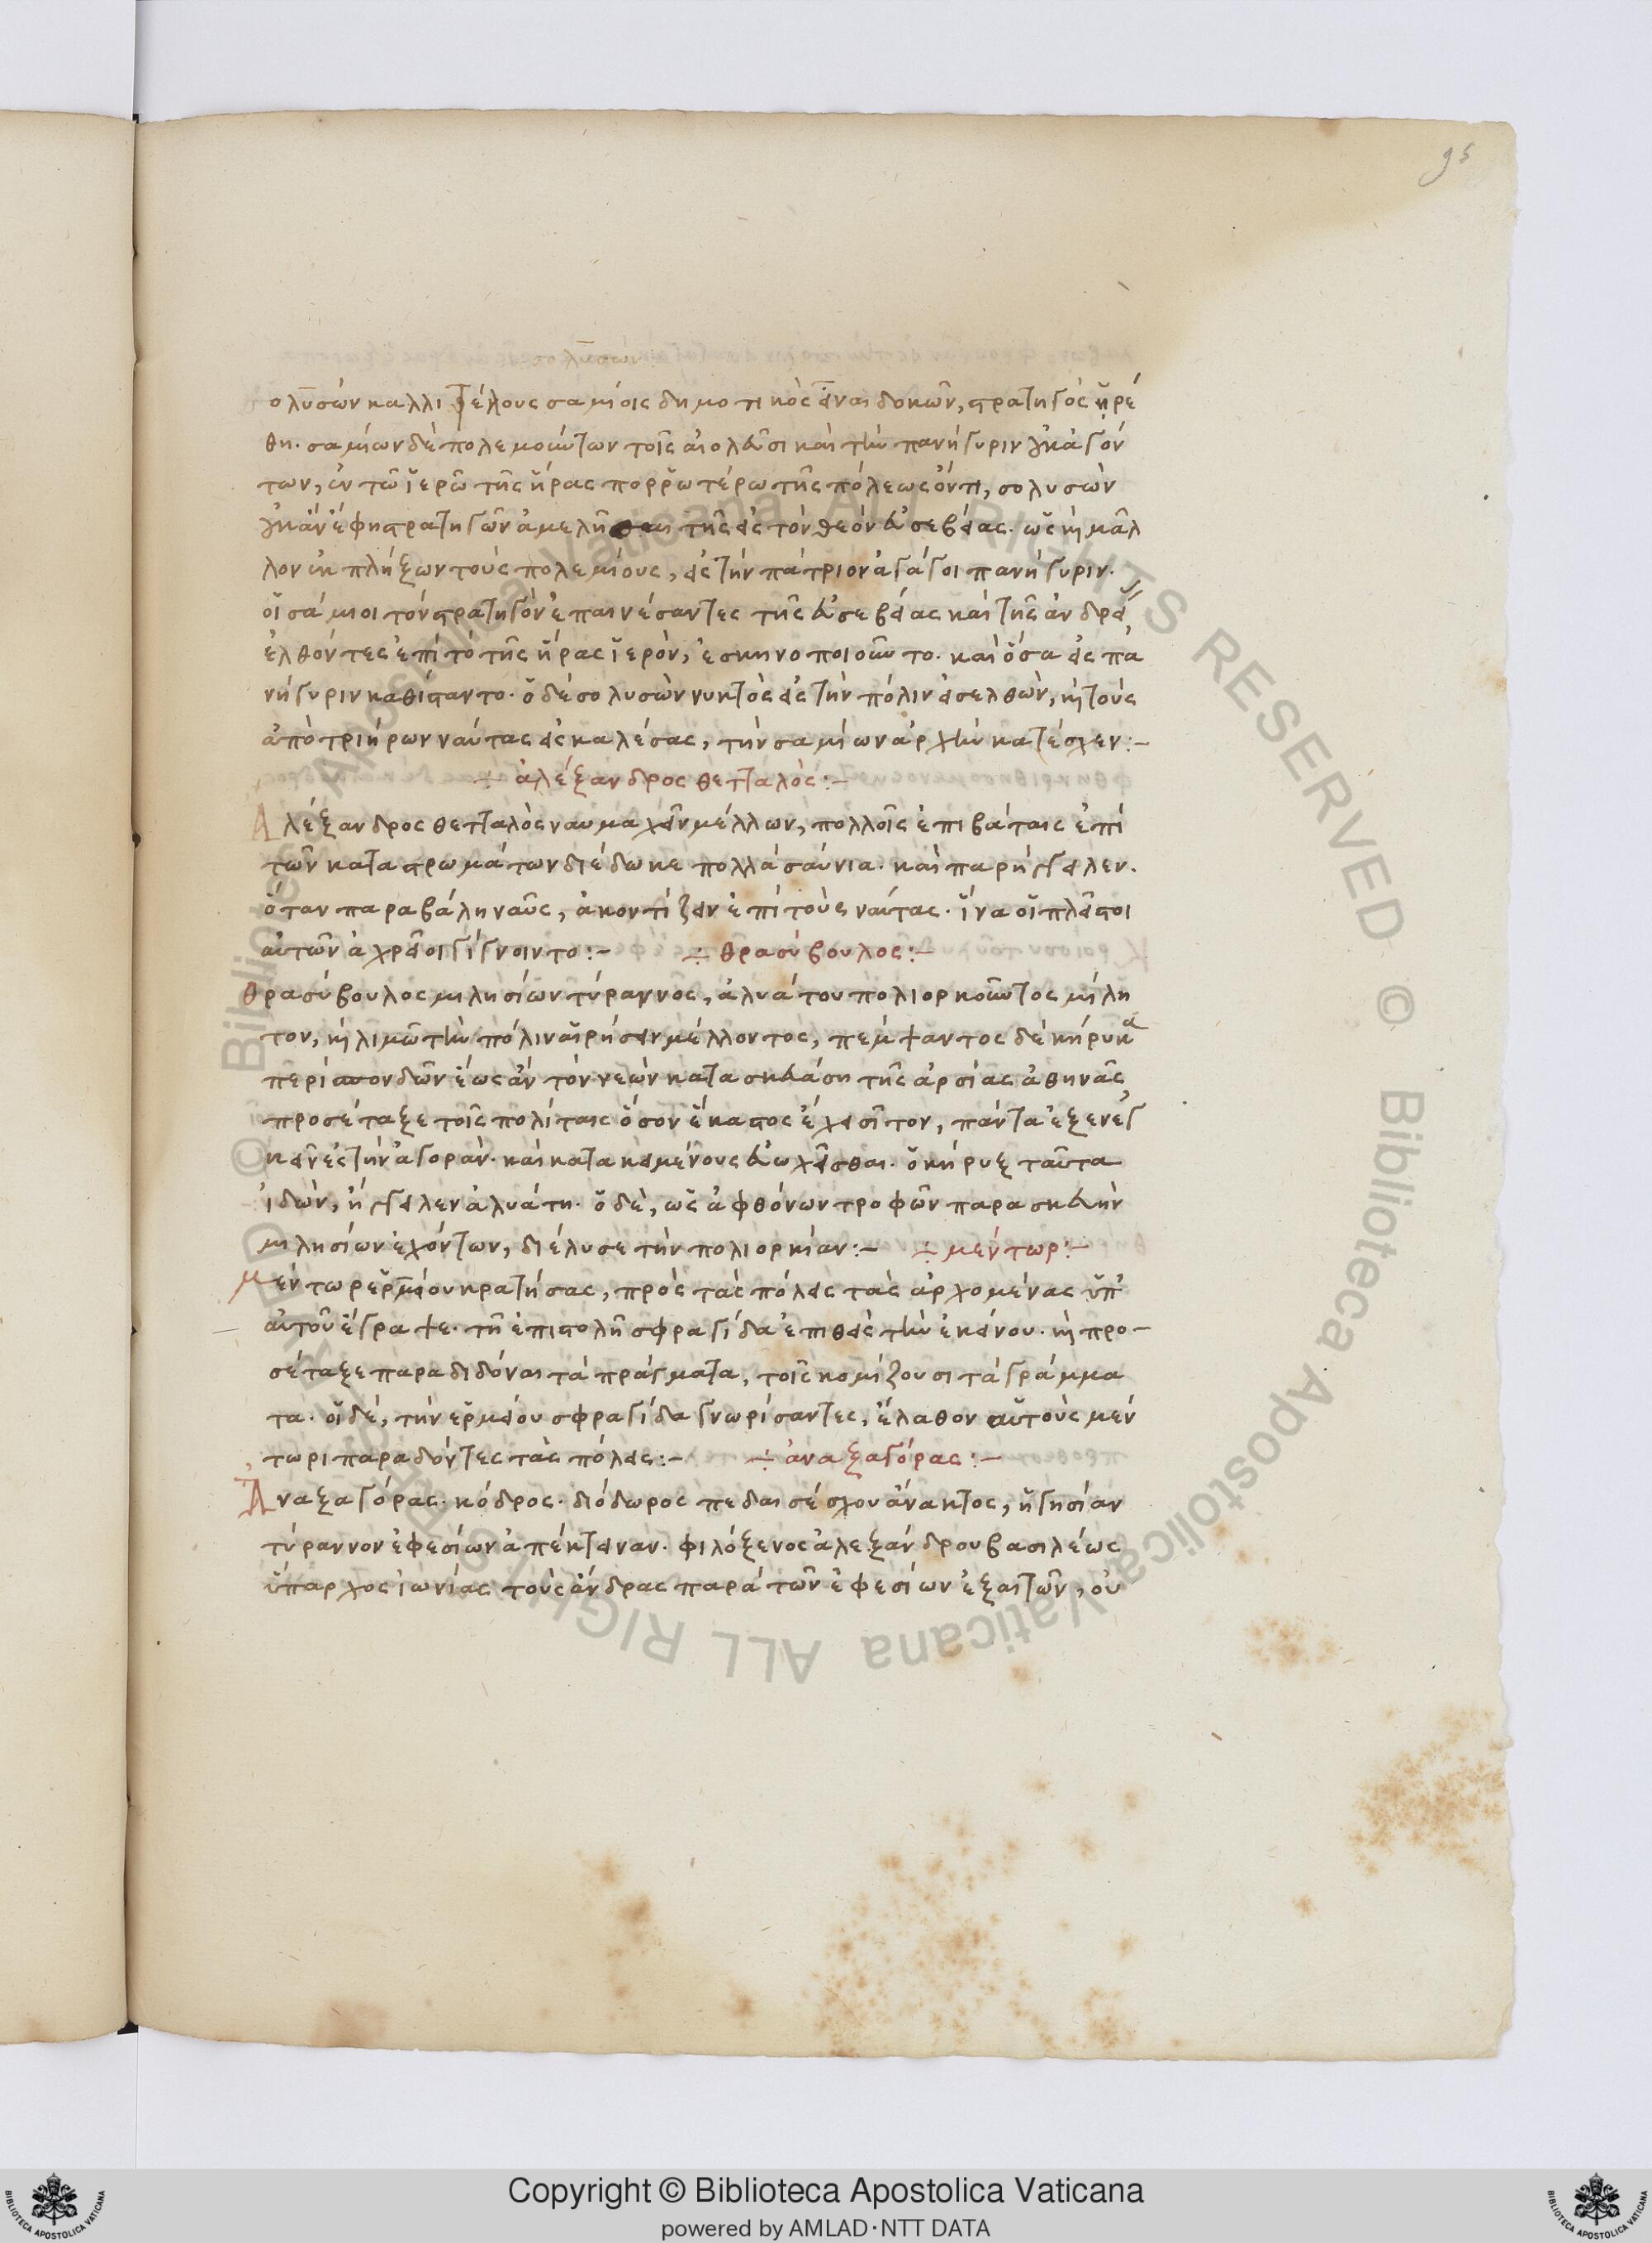 95
σολυσών
ολυσών καλλιτέλους σαμίοις δημοτικὸς εἶναι δοκῶν, στρατηγὸς ᾑρέ
θη. σαμίων δὲ πολεμούντων τοῖς αἰολεῦσι καὶ τὴν πανήγυριν οὐκ ἀγόν
των, ἐν τῶ ἱερῶ τῆς ἥρας πορρωτέρω τῆς πόλεως ὄντι, σολυσὼν
οὐκ ἂν ἔφη στρατηγῶν ἀμελῆσαι τῆς εἰς τὸν θεὸν εὐσεβείας. ὡς καὶ μᾶλ
λον ἐκπλήξων τοὺς πολεμίους, εἰ τὴν πάτριον ἀγάγοι πανήγυριν.
οἱ σάμιοι τὸν στρατηγὸν ἐπαινέσαντες τῆς εὐσεβείας καὶ τῆς ἀνδρεί
ἐλθόντες ἐπὶ τὸ τῆς ἥρας ἱερὸν, ἐσκηνοποιοῦντο. καὶ ὅσα εἰς πα
νήγυριν καθίσταντο. ὁ δὲ σολυσὼν νυκτὸς εἰς τὴν πόλιν εἰσελθὼν, καὶ τοὺς
ἀπὸ τριήρων ναύτας εἰσκαλέσας, τὴν σαμίων ἀρχὴν κατέσχεν:–
÷ ἀλέξανδρος θετταλός:–
Ἀλέξανδρος θετταλὸς ναυμαχεῖν μέλλων, πολλοῖς ἐπιβάταις ἐπὶ
τῶν καταστρωμάτων διέδωκε πολλὰ σαύνια. καὶ παρήγγειλεν.
ὅταν παραβάλη ναῦς, ἀκοντίζειν ἐπὶ τοὺς ναύτας. ἵνα οἱ πλεῖστοι
αὐτῶν ἀχρεῖοι γίγνοιντο:– ÷ θρασύβουλος:–
θρασύβουλος μιλησίων τύραννος, ἀλυάτου πολιορκοῦντος μίλη
τον, καὶ λιμῶ τὴν πόλιν αἱρήσειν μέλλοντος, πέμψαντος δὲ κήρυκα
περὶ σπονδῶν ἕως ἂν τὸν νεὼν κατασκευάση τῆς ἀρσίας ἀθηνᾶς
προσέταξε τοῖς πολίταις ὅσον ἕκαστος ἔχει σῖτον, πάντα ἐξενεγ
κεῖν ἐς τὴν ἀγοράν. καὶ κατακειμένους εὐωχεῖσθαι. ὁ κήρυξ ταῦτα
ἰδὼν, ἤγγειλεν ἀλυάτη. ὁ δὲ, ὡς ἀφθόνων τροφῶν παρασκευὴν
μιλησίων ἐχόντων, διέλυσε τὴν πολιορκίαν:– ÷ μέντωρ:–
Μέντωρ ἑρμείου κρατήσας, πρὸς τὰς πόλεις τὰς ἀρχομένας ὑπ'
αὐτοῦ ἔγραψε. τῆ ἐπιστολῆ σφραγίδα ἐπιθεὶς τὴν ἐκείνου. καὶ προ–
σέταξε παραδιδόναι τὰ πράγματα, τοῖς κομίζουσι τὰ γράμμα
τα. οἱ δὲ, τὴν ἑρμείου σφραγίδα γνωρίσαντες, ἔλαθον αὑτοὺς μέν
τωρι παραδόντες τὰς πόλεις:– ÷ ἀναξαγόρας:–
Ἀναξαγόρας. κόδρος. διόδωρος παῖδες ἐχεάνακτος, ἡγησίαν
τύραννον ἐφεσίων ἀπέκτειναν. φιλόξενος ἀλεξάνδρου βασιλέως
ὕπαρχος ἰωνίας τοὺς ἄνδρας παρὰ τῶν ἐφεσίων ἐξαιτῶν, οὐ
Copyright © Biblioteca Apostolica Vaticana
powered by AMLAD·NTT DATA